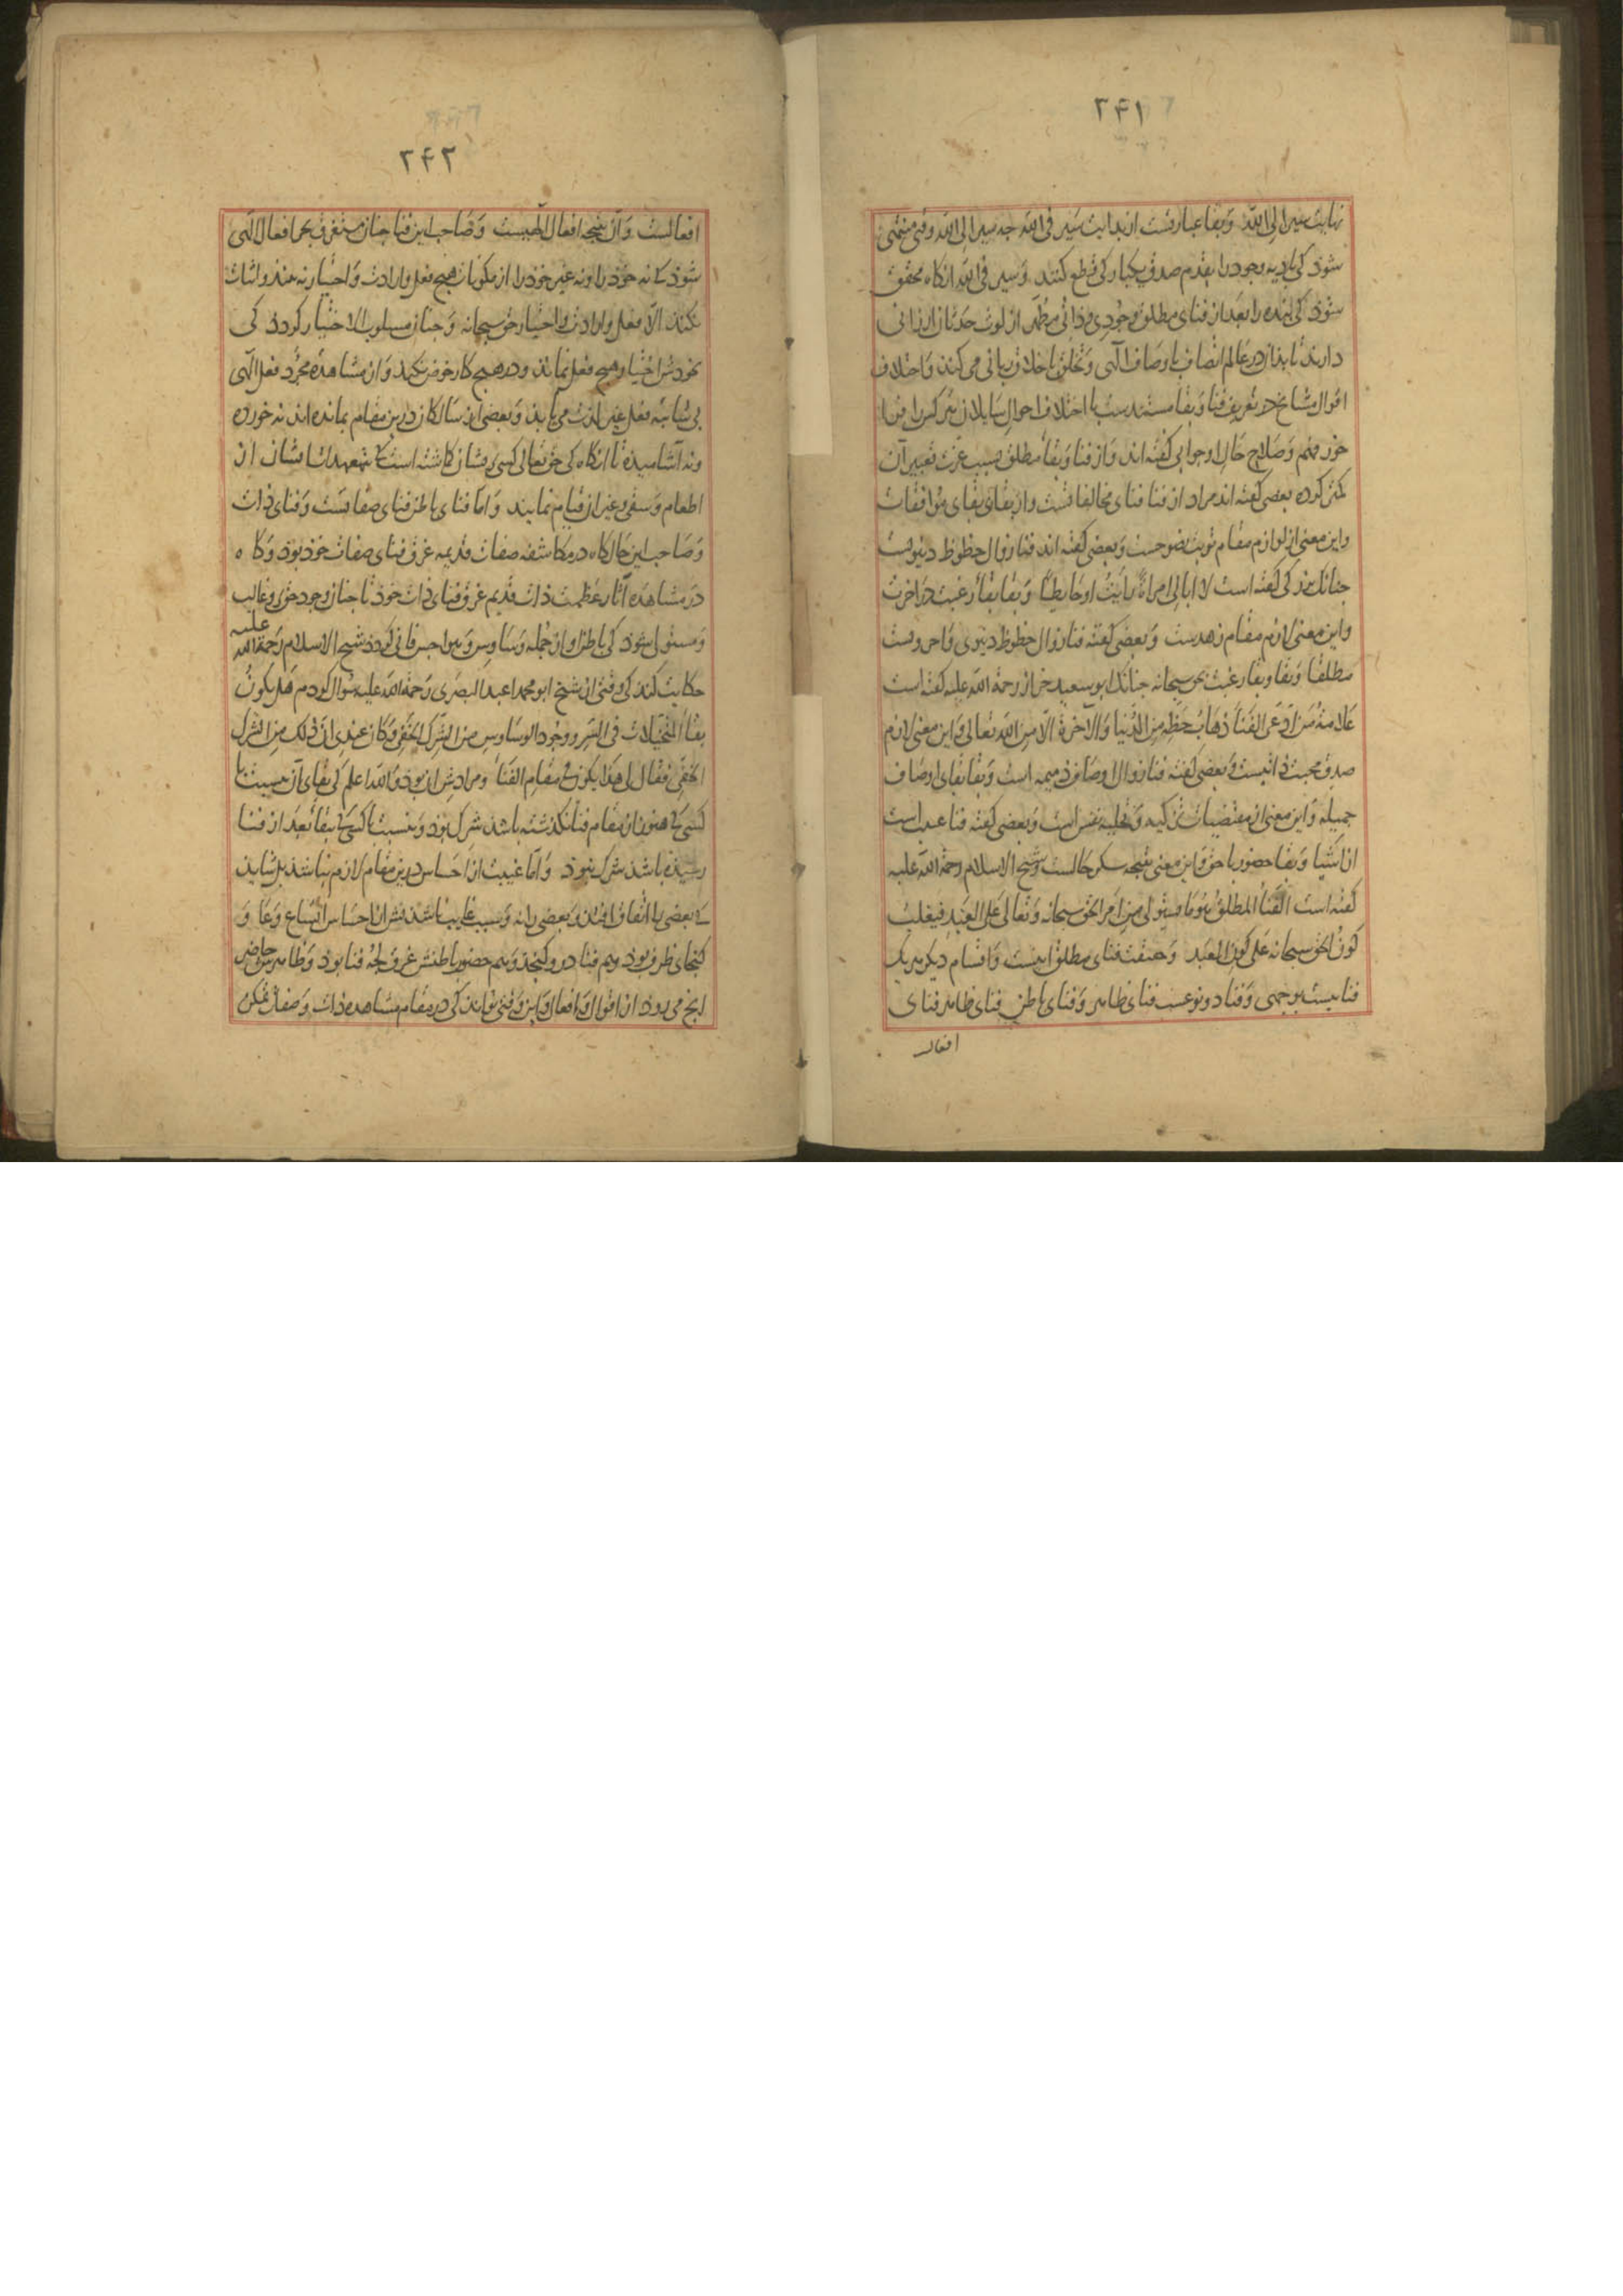 ۲۴۱
نهایت سیر الی الله وبقا عبارتست از بدایت سیر فی الله چه سیر الی الله وقتی منتهی
شوذ کی بادیه وجود را بقدم صدق یکبارکی قطع کنند وسیر فی الله انکاه محقق
شوذ کی بنده را بعد از فنای مطلق وجودی وذاتی مطهر از لوث حدثان ارزانی
دارند تا بذان در عالم اتصاف باوصاف الهی وتخلق باخلاق ربانی می کنند واختلاف
اقوال مشایخ در تعریف فنا وبقا مستندست با اختلاف احوال سایلان هر کس را فرا
خور فهم وصلاح حال او جوابی کفته اند واز فنا وبقاء مطلق بسبب عزت تعبیر آن
کمتر کرده بعضی کفته اند مراد از فنا فنای مخالفاتست واز بقا بقای موافقات
واین معنی از لوازم مقام توبت نصوحست وبعضی کفته اند فنا زوال حظوظ دنیویست
جنانک بزرکی کفته است لا ابالی امراة رایت او حایطا وبقا بقاء رغبت در اخرت
واین معنی لازم مقام زهدست وبعضی کفته فنا زوال حظوظ دنیوی واخرویست
مطلقا وبقا وبقاء رغبت بحق سبحانه جنانک ابو سعید خراز رحمة الله علیه کفته است
علامة من ادعی الفناء ذهاب حظه من الدنیا والاخرة الا من الله تعالی واین معنی لازم
صدق محبت ذاتیست وبعضی کفته فنا زوال اوصاف ذمیمه است وبقا بقای اوصاف
جمیله واین معنی از مقتضیات تزکیه وتحلیه نفس است وبعضی کفته فنا غیبت است
از اشیا وبقا حضور با حق واین معنی نتیجه سکر حالست وشیخ الاسلام رحمة الله علیه
کفته است الفناء المطلق هو ما یستولی من امر الحق سبحانه وتعالی علی العبد فیغلب
کون الحق سبحانه علی کون العبد وحقیقت فنای مطلق اینست واقسام دیکر هر یک
فناییست بوجهی وفنا دو نوعست فنای ظاهر وفنای باطن فنای ظاهر فنای
افعال
۲۴۲
افعالست وآن نتیجه افعال الهیست وصاحب این فنا چنان مستغرق بحر افعال الهی
شوذ که نه خوذ را ونه غیر خوذ را از مکونات هیچ فعل وارادت واختیار نه بیند واثبات
نکند الا فعل وارادت واختیار حق سبحانه وجنان مسلوب الاختیار کردذ کی
بخودش اختیار هیچ فعل نماند ودر هیچ کار خوض نکند واز مشاهده مجرد فعل الهی
بی شایبه فعل غیر لذت می یابد وبعضی از سالکان درین مقام بمانده اند نه خورده
ونه آشامیده تا انکاه کی حق تعالی کسی بریشان کماشته است که بتعهدات ایشان از
اطعام وسقی وغیر ان قیام نمایند واما فنای باطن فنای صفاتست وفنای ذات
وصاحب این حال کاه در مکاشفه صفات قدیمه غرق فنای صفات خوذ بوذ وکاه
در مشاهده آثار عظمت ذات قدیم غرق فنای ذات خوذ تا جنان وجود حق بر وغالب
ومستولی شوذ کی باطن او از جمله وساوس وهواجس فانی کردد شیخ الاسلام رحمة الله علیه
حکایت کند کی وقتی از شیخ ابو محمد اعبد البصری رحمة الله علیه سوال کردم هل یکون
بقاء المتخیلات فی السر ووجود الوساوس من الشرک الخفی وکان عندی ان ذلک من الشرک
الخفی فقال لی هذا یکون فی مقام الفناء ومرادش ان بوذ والله اعلم کی بقای آن نسبت با
کسی که هنوز از مقام فنا نکذشته باشد شرک بوذ ونسبت با کسی که ببقاء بعد از فنا
رسیذه باشد شرک نبوذ واما غیبت از احساس درین مقام لازم نباشد بل شاید
که بعضی را اتفاق افتد وبعضی را نه وسبب غایب ناشدنش از احساس اتساع وعا و
کنجای ظرف بوذ وهم فنا درو کنجذ وهم حضور باطنش غرق لجه فنا بوذ وظاهرش حاضر
انج می روذ از اقوال وافعال واین وقتی تواند کی در مقام مشاهده ذات وصفات تمکن